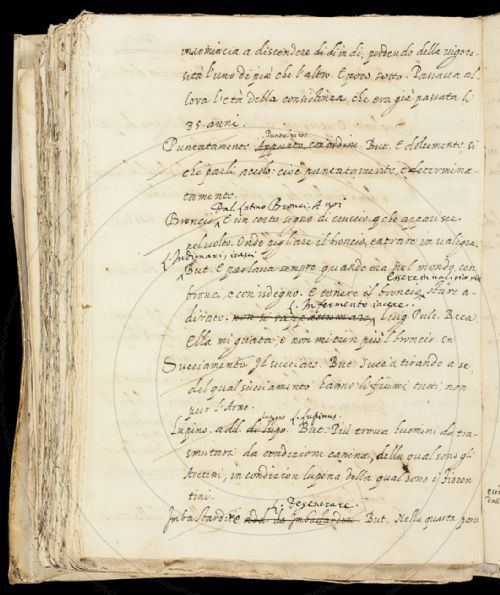 incomincia a discendere di dì in dì, perdendo della vigoro-
sità l'uno dì più che l'altro. E poco sotto. Passava al-
lora l'età della consistenza, che era già passata li
35. anni.
Puntatamente. Appunto, con ordine. But. E dolcemente sì
che parli accolo: cioè puntatamente, e determina-
tamente.
Dal latino Bronci. A noi
Broncio, È un certo segno di cruccio, che apparisce
nel volto. Onde pigliare il broncio, entrare in valigia.
But. E parlava sempre quando era nel mondo, con
bronci, e con isdegno. E tenere il broncio, stare a-
dirato. Luig. Pulc. Beca
Ella mi guata, e non mi tien più 'l broncio. en
Succiamento. Il succiare. But. Succia tirando a se
del qual succiamento hanno li fiumi tutti: non
pur l'Arno.
Lupino. add. di lupo. But. Più trova luomini da tra-
smutarsi da condizione canina, della qual sono gli
Aretini, in condizion lupina della qual sono i Fioren-
tini.
L. Degenerare.
Imbastardire But. Nella quarta parte